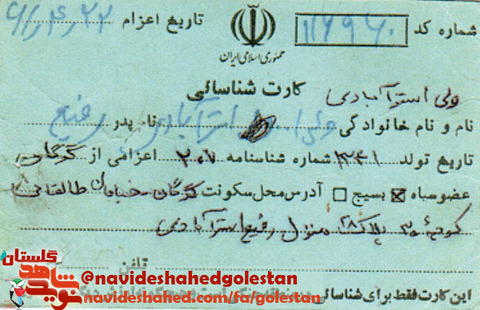 شماره کد ۱۱۶۹۶۰ تاریخ اعزام ۶۱/۴/۲۲
جمهوری اسلامی ایران
کارت شناسائی
ولی استرآبادی
نام و نام خانوادگی ولی استرآبادی نام پدر رفیع
تاریخ تولد ۱۳۴۱ شماره شناسنامه ۲۰۷ اعزامی از گرگان
عضو سپاه ☒ بسیج ☐ آدرس محل سکونت گرگان خیابان طالقانی
کوچه ۳۰ پلاک منزل رفیع استرآبادی
تلفن
این کارت فقط برای شناسائی
گلستان
نوید شاهد
@navideshahedgolestan
navideshahed.com/fa/golestan